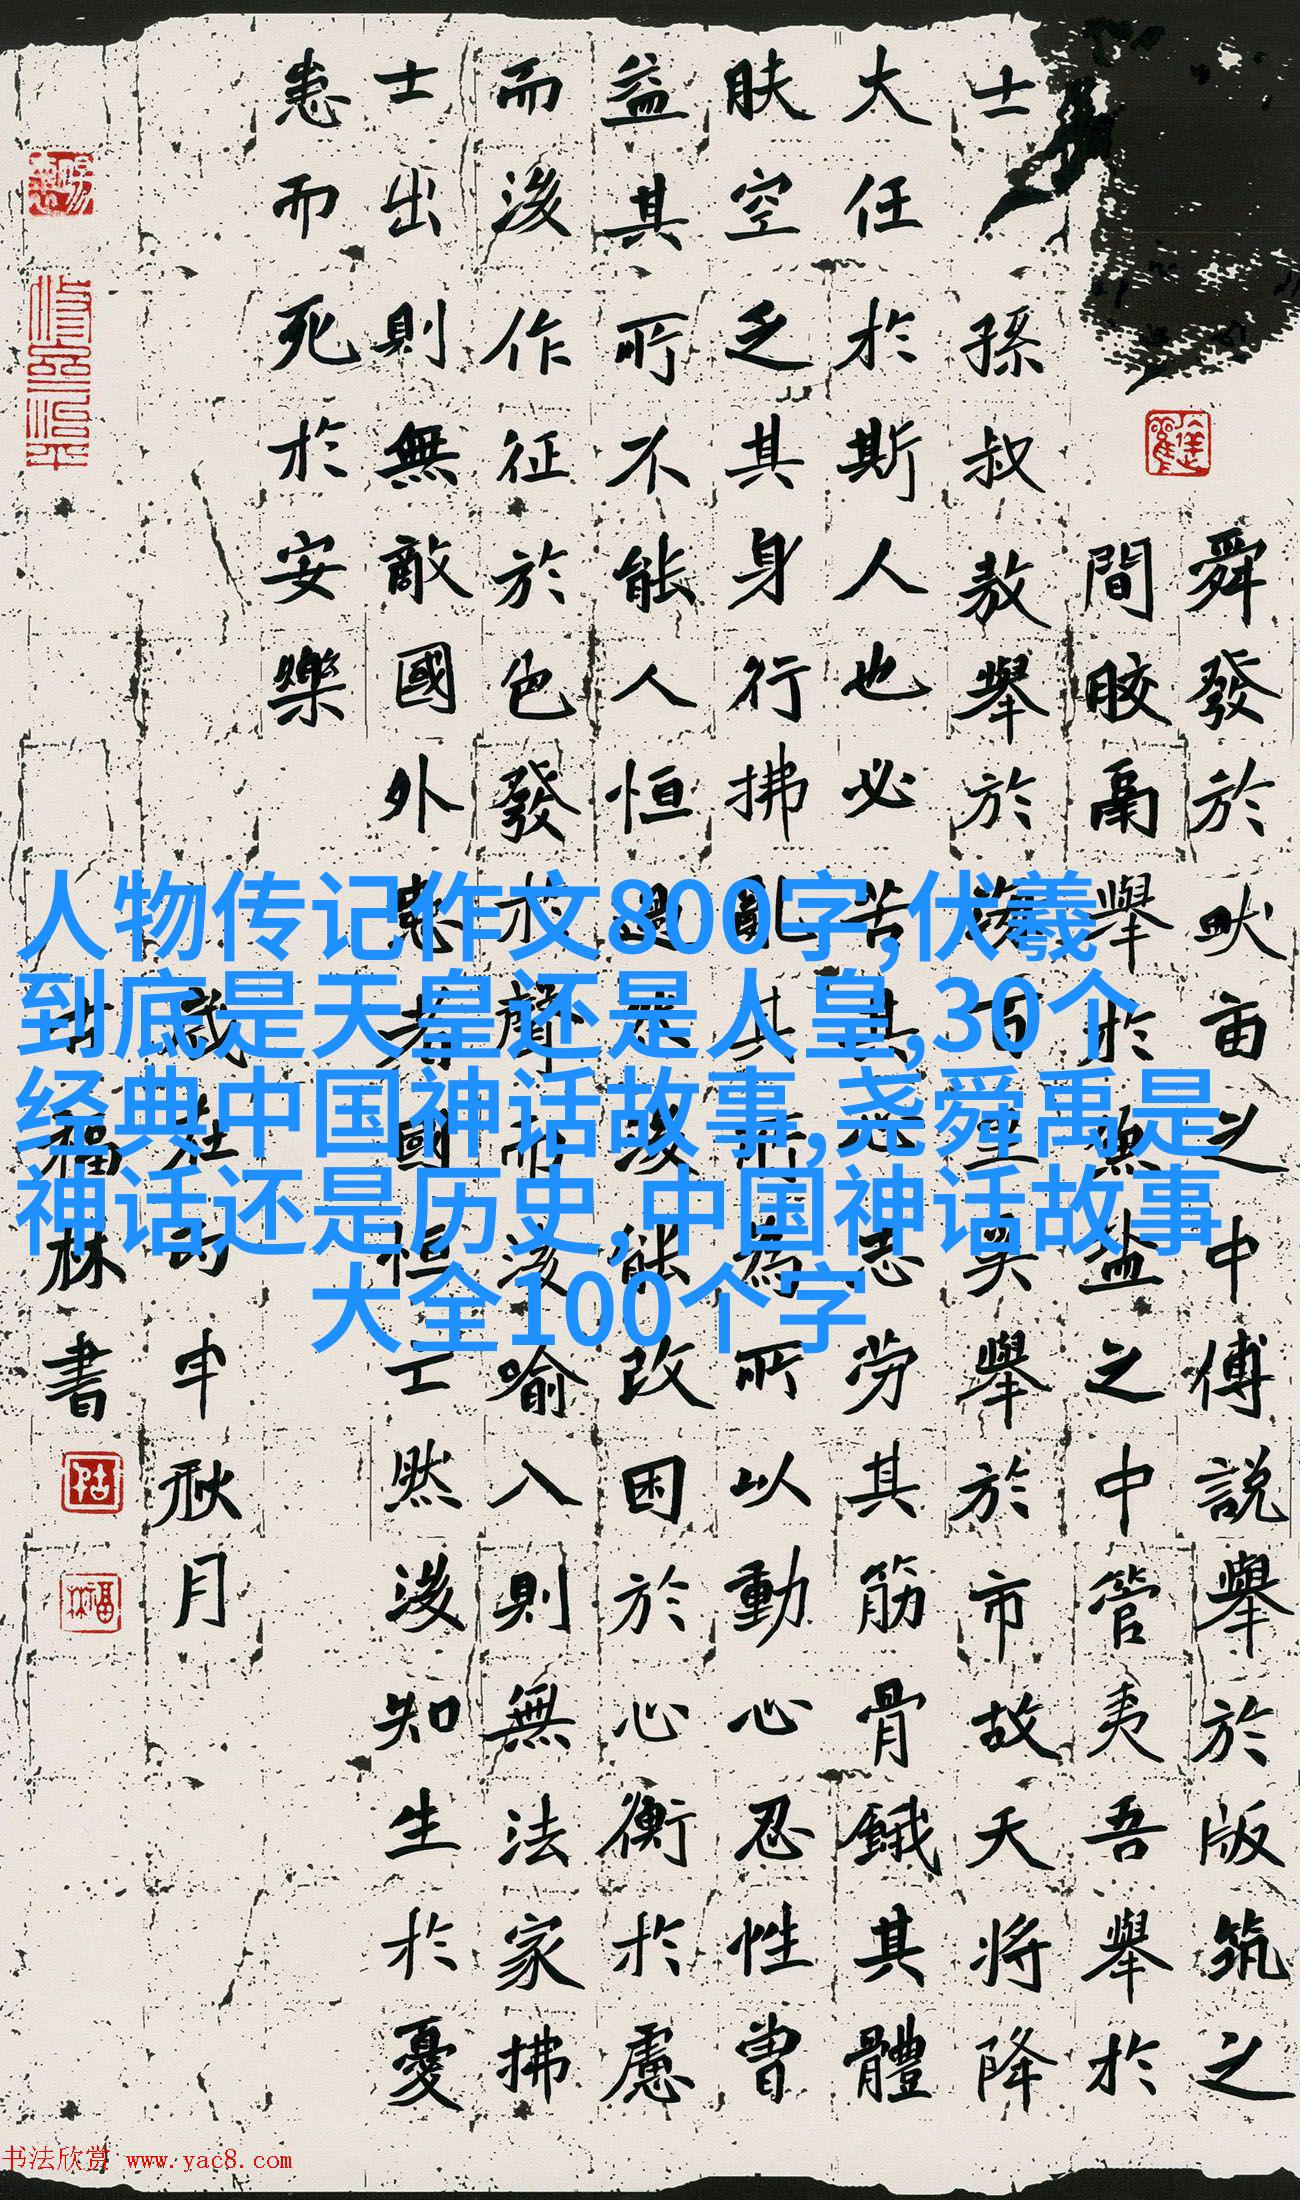 舜發於畎亩之中傅説舉於版筑之
間膠鬲舉於魚盐之中管夷吾舉於
士孫叔敖舉於海百里奚舉於市故天將降
大任於斯人也必苦其心志劳其筋骨餓其體
肤空乏其身行拂亂其所為所以動心忍性曾
益其所不能人恒過然後能改困於心衡於慮
而後作征於色發於聲而後喻入則無法家拂
士出則無敵國外患者國恒亡然後知生於憂
患而死於安樂
歲在申秋月
福林書
人物传记作文800字,伏羲
到底是天皇还是人皇,30个
经典中国神话故事,尧舜禹是
神话还是历史,中国神话故事
大全100个字
书法欣赏 www.yac8.com